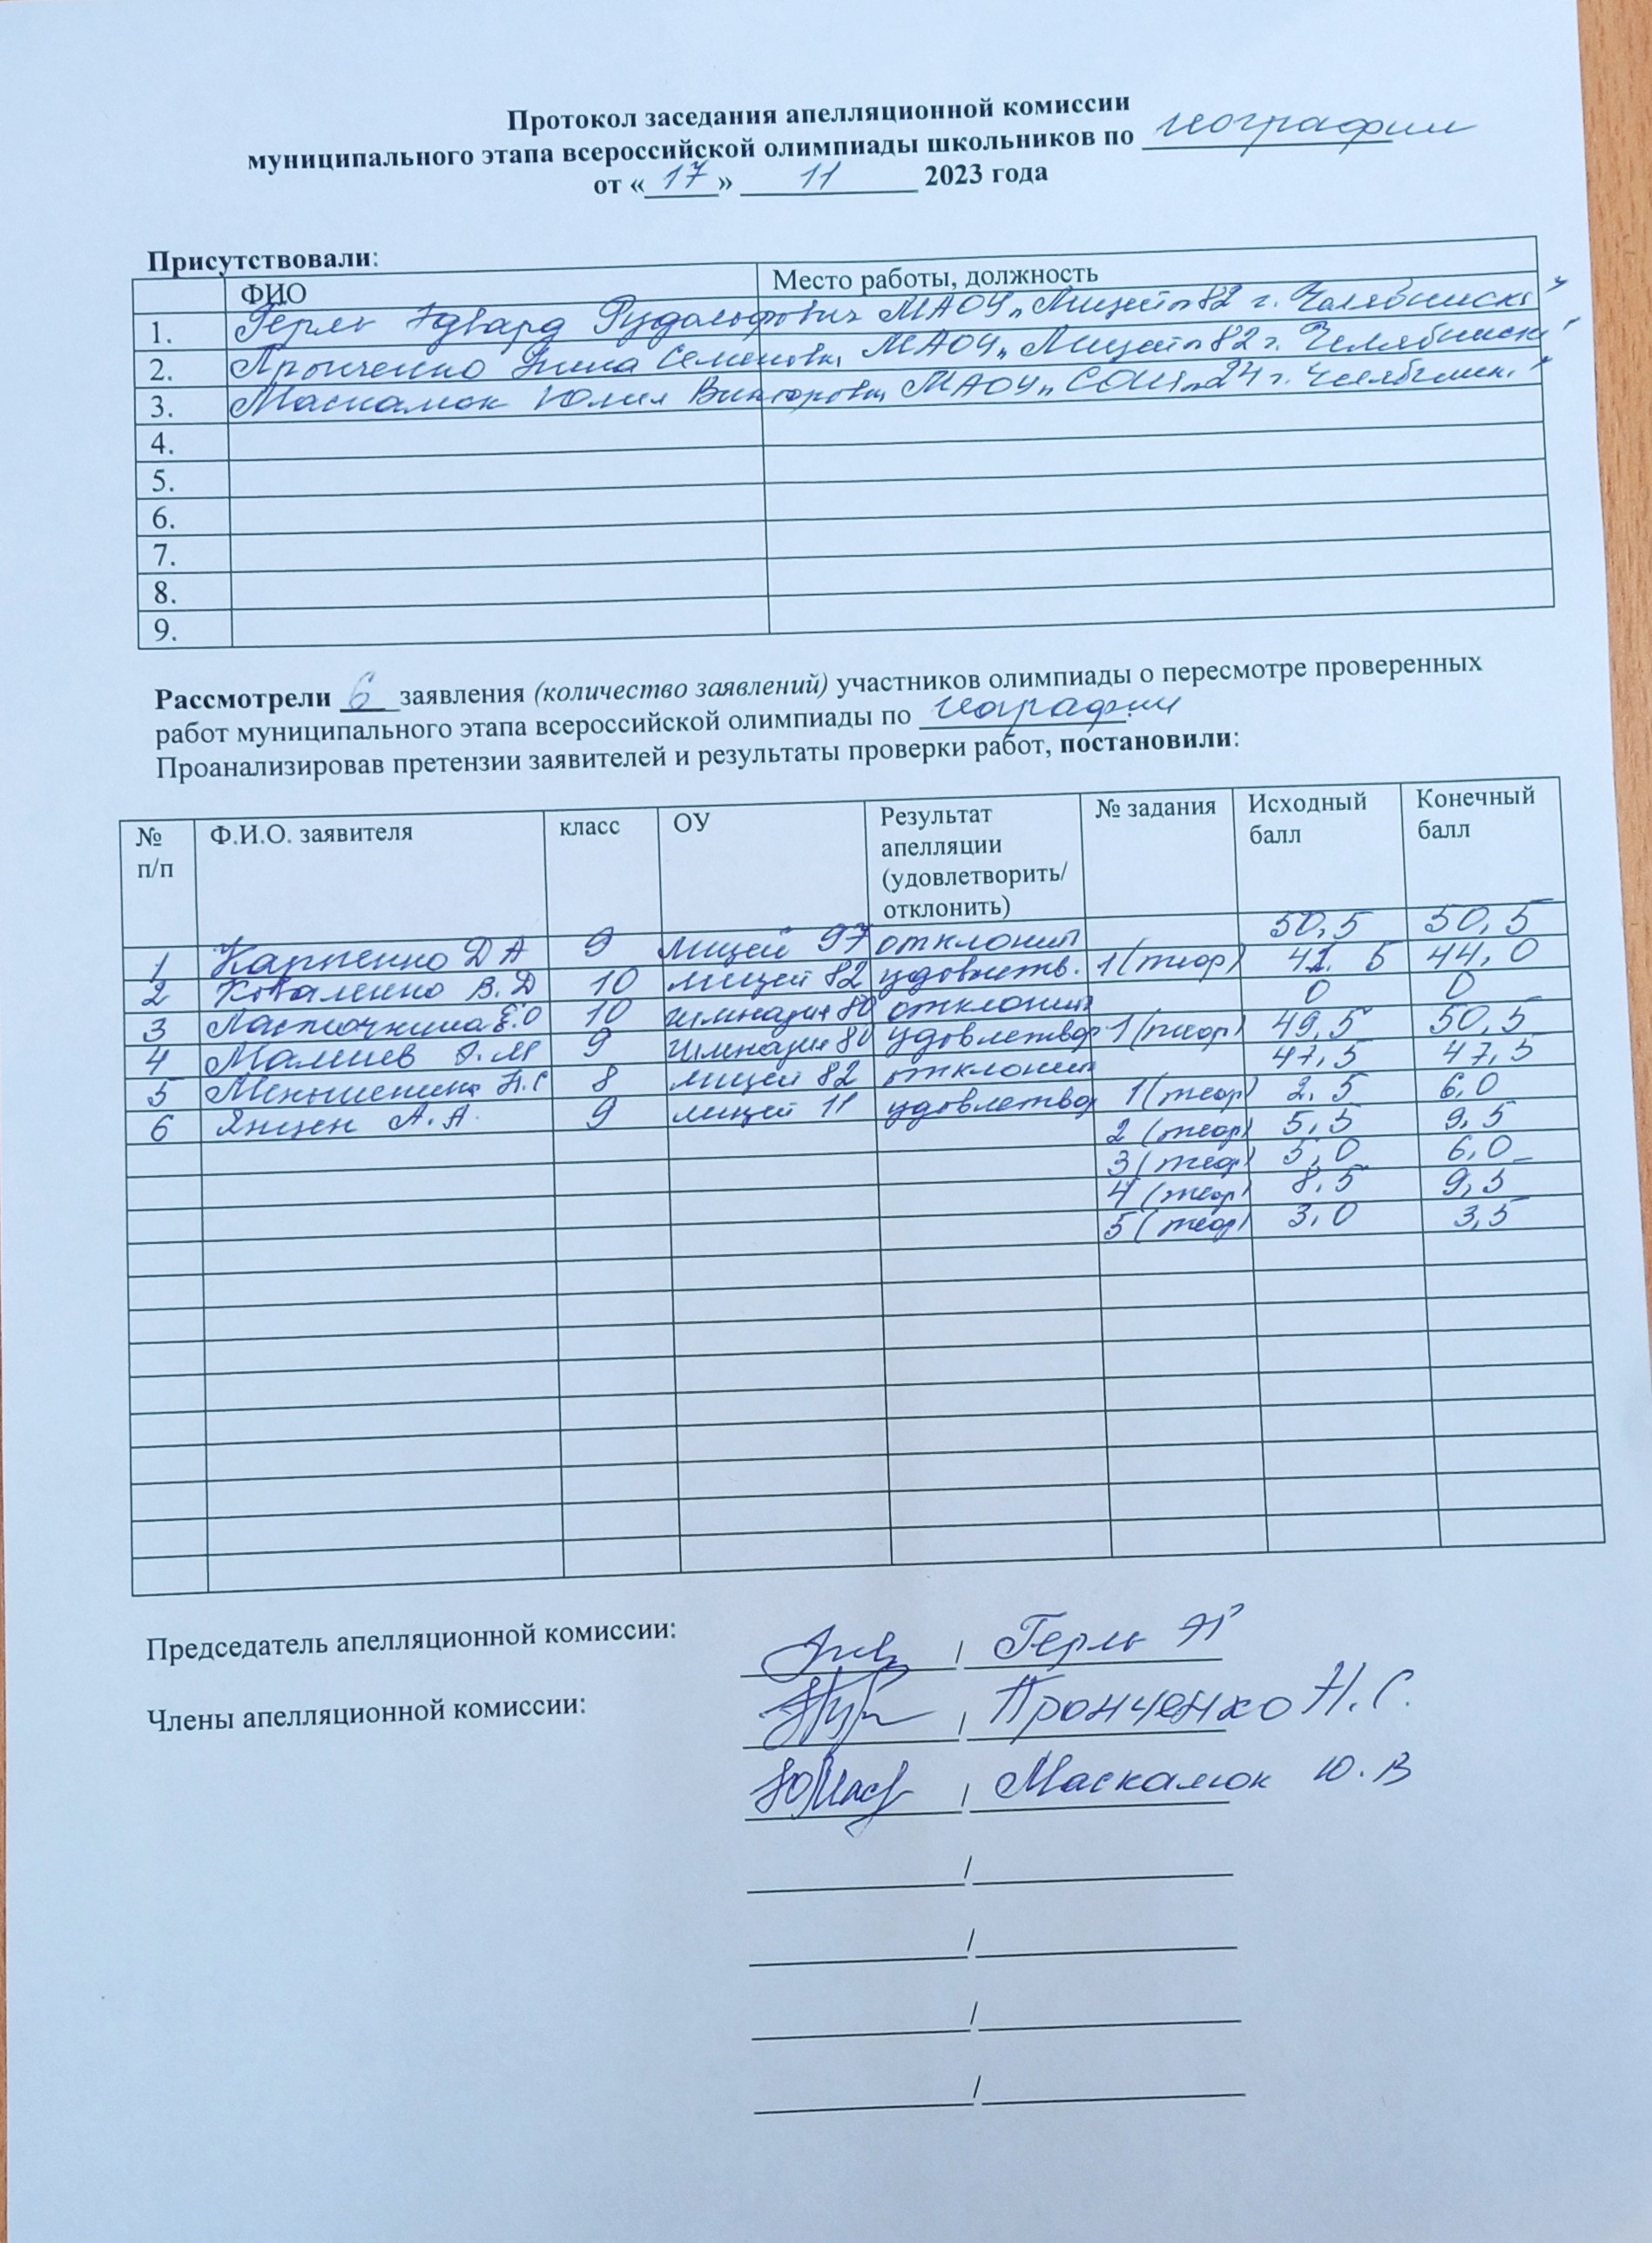 Протокол заседания апелляционной комиссии
муниципального этапа всероссийской олимпиады школьников по географии
от «17» 11 2023 года
Присутствовали:
ФИО Место работы, должность
1. Герль Эдвард Рудольфович МАОУ „Лицей № 82 г. Челябинска"
2. Пронченко Нина Семеновна МАОУ „Лицей № 82 г. Челябинска"
3. Маскалюк Юлия Викторовна МАОУ „СОШ № 24 г. Челябинска"
4.
5.
6.
7.
8.
9.
Рассмотрели 6 заявления (количество заявлений) участников олимпиады о пересмотре проверенных
работ муниципального этапа всероссийской олимпиады по географии.
Проанализировав претензии заявителей и результаты проверки работ, постановили:
№ п/п Ф.И.О. заявителя класс ОУ Результат апелляции (удовлетворить/ отклонить) № задания Исходный балл Конечный балл
1 Карпенко Д А 9 лицей 97 отклонить 50,5 50,5
2 Коваленко В. Д 10 лицей 82 удовлетв. 1 (теор) 41.5 44,0
3 Ласточкина Е.О 10 гимназия 80 отклонить 0 0
4 Малиев М 9 гимназия 80 удовлетвор 1 (теор) 49,5 50,5
5 Меньшенина А.С 8 лицей 82 отклонить 47,5 47,5
6 Янцен А.А. 9 лицей 11 удовлетвор 1 (теор) 2.5 6,0
2 (теор) 5,5 9,5
3 (теор) 5,0 6,0
4 (теор) 8.5 9,5
5 (теор) 3,0 3,5
Председатель апелляционной комиссии: / Герль ЭР
Члены апелляционной комиссии: / Пронченко Н.С.
/ Маскалюк Ю.В
/
/
/
/